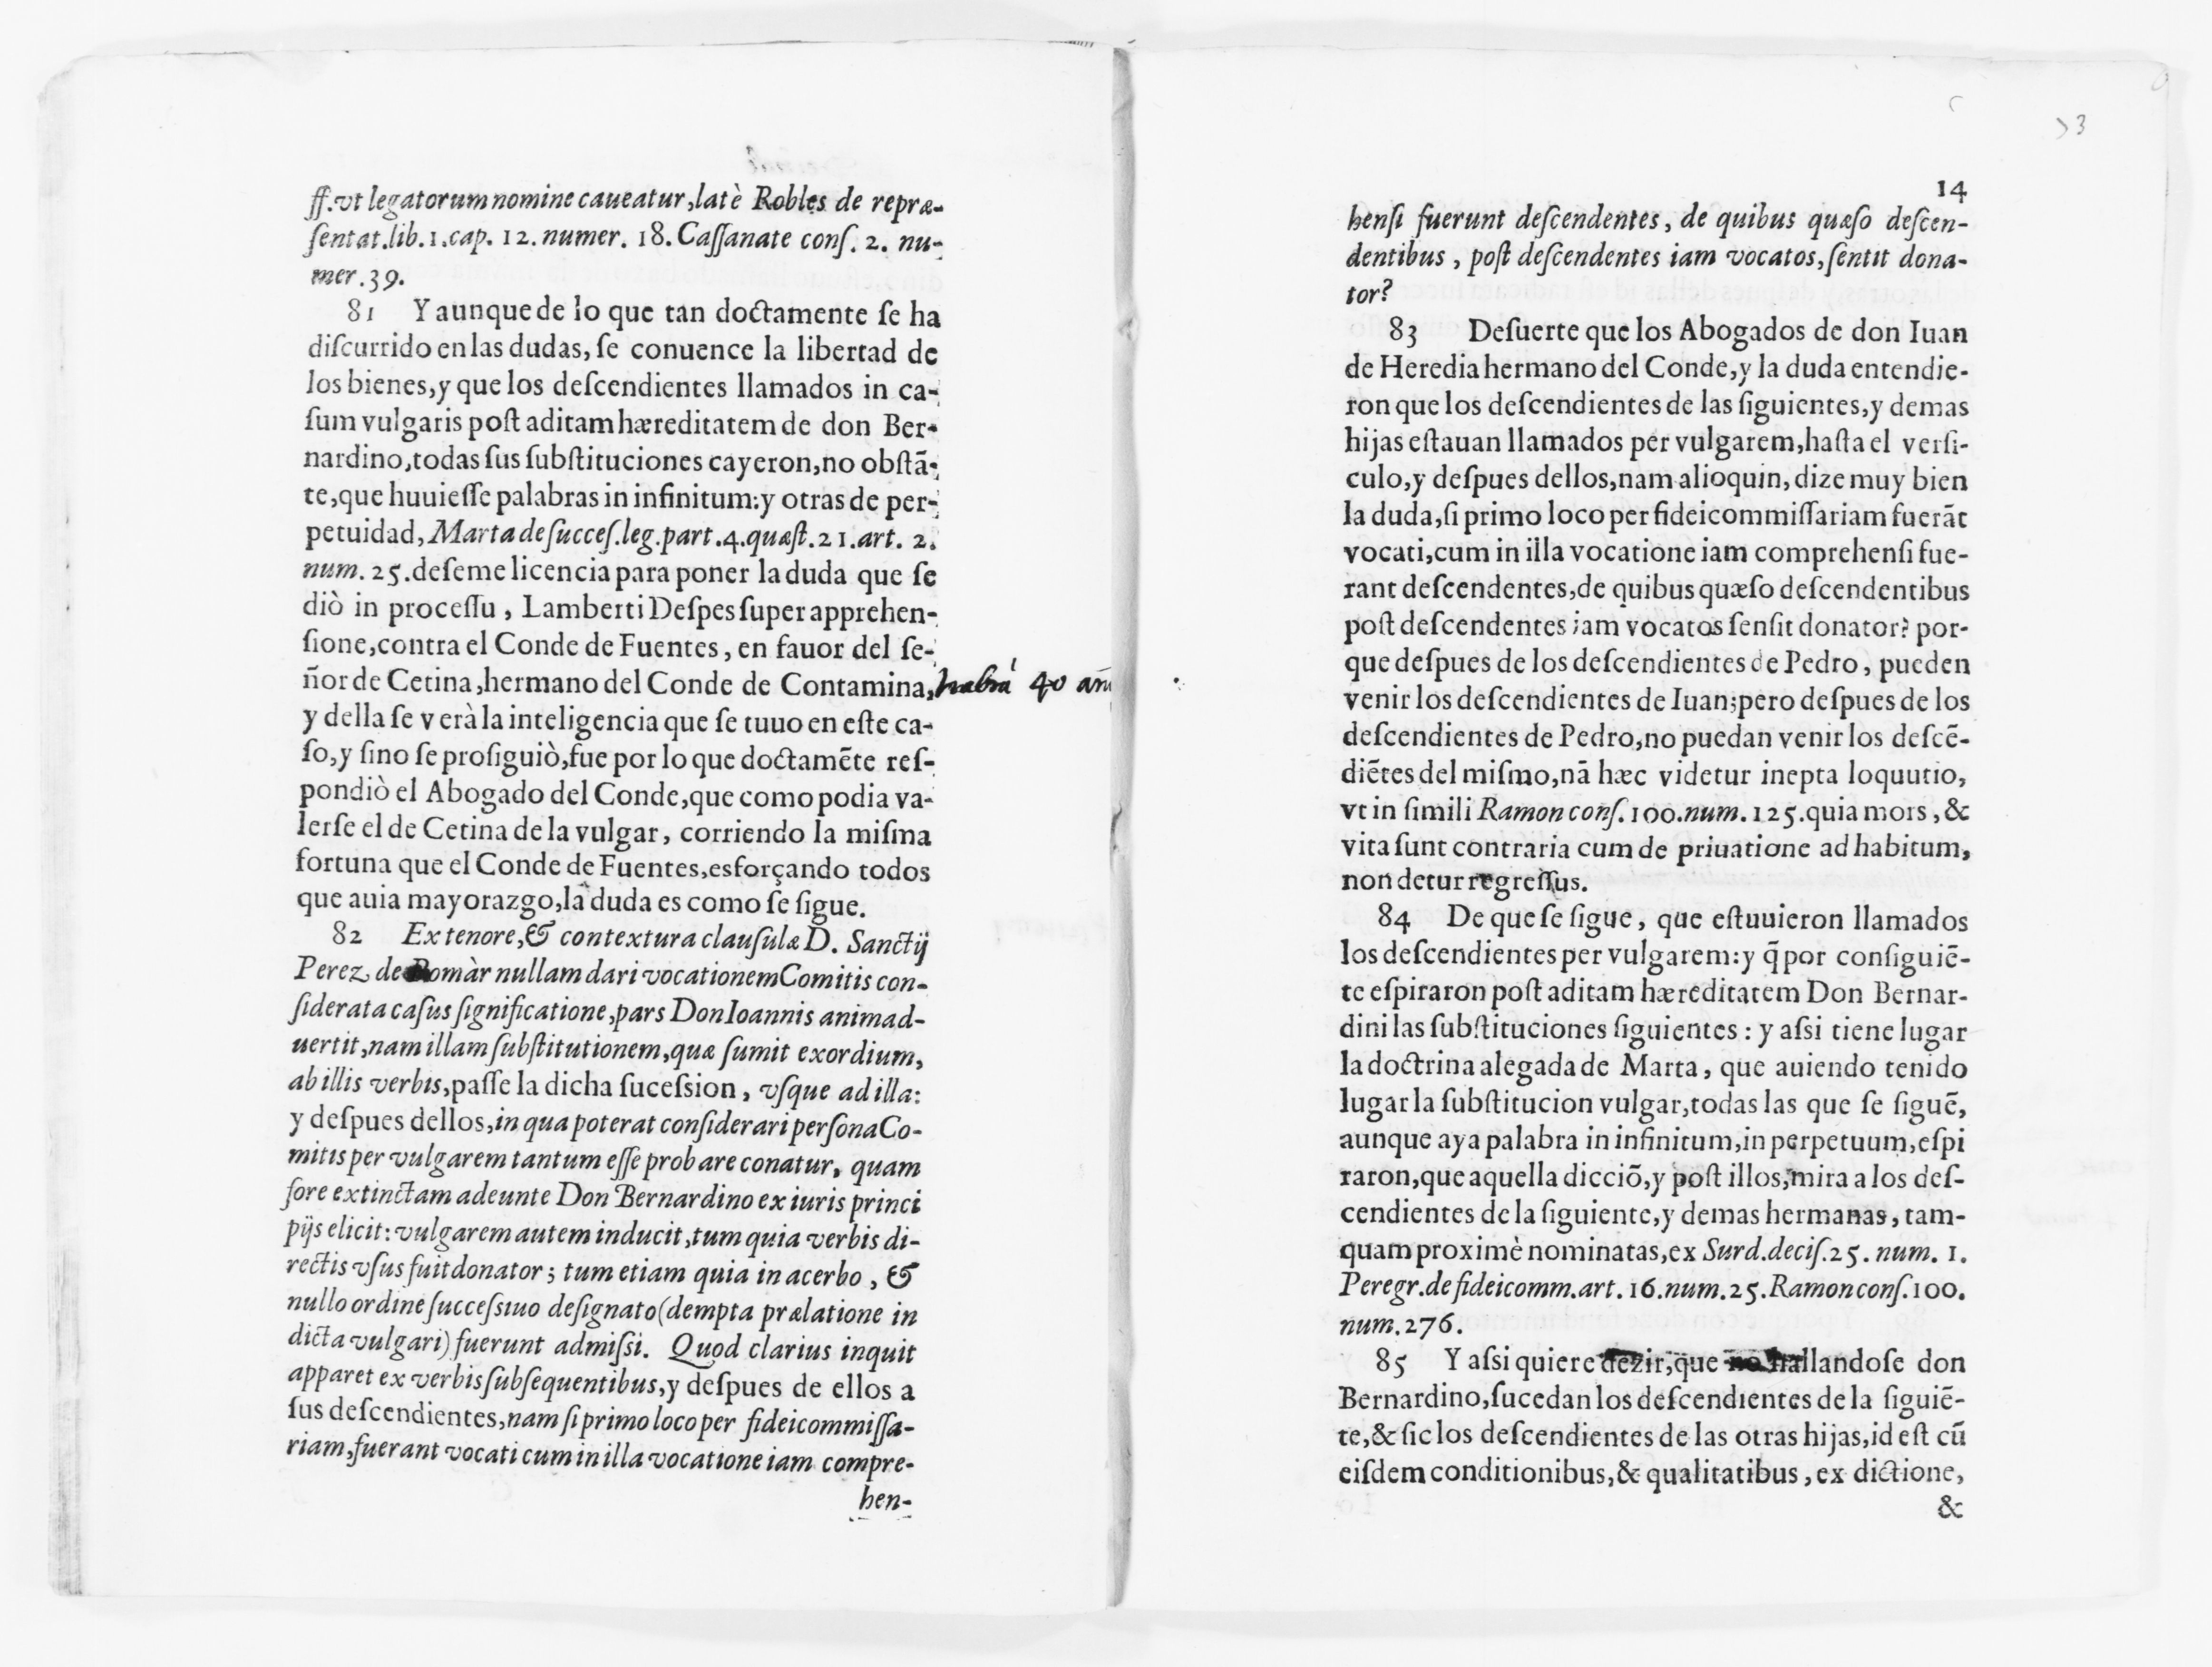 ff.vt legatorum nomine caueatur, latè Robles de repræ-
ſentat.lib.1.cap. 12. numer. 18. Caſſanate conſ. 2. nu-
mer.39.
81 Y aunque de lo que tan doctamente ſe ha
diſcurrido en las dudas, ſe conuence la libertad de
los bienes, y que los deſcendientes llamados in ca-
ſum vulgaris poſt aditam hæreditatem de don Ber-
nardino, todas ſus ſubſtituciones cayeron, no obſtã-
te, que huuieſſe palabras in infinitum: y otras de per-
petuidad, Marta de ſucceſ.leg.part.4.quæſt.21.art. 2.
num. 25. deſeme licencia para poner la duda que ſe
diò in proceſſu, Lamberti Deſpes ſuper apprehen-
ſione, contra el Conde de Fuentes, en fauor del ſe-
ñor de Cetina, hermano del Conde de Contamina, habrá 40 añ
y della ſe verà la inteligencia que ſe tuuo en eſte ca-
ſo, y ſino ſe proſiguiò, fue por lo que doctamẽte reſ-
pondiò el Abogado del Conde, que como podia va-
lerſe el de Cetina de la vulgar, corriendo la miſma
fortuna que el Conde de Fuentes, esforçando todos
que auia mayorazgo, la duda es como ſe ſigue.
82 Ex tenore, & contextura clauſulæ D. Sanctij
Perez de Pomàr nullam dari vocationem Comitis con-
ſiderata caſus ſignificatione, pars Don Ioannis animad-
uertit, nam illam ſubſtitutionem, quæ ſumit exordium,
ab illis verbis, paſſe la dicha ſuceſsion, vſque ad illa:
y deſpues dellos, in qua poterat conſiderari perſona Co-
mitis per vulgarem tantum eſſe probare conatur, quam
fore extinctam adeunte Don Bernardino ex iuris princi
pijs elicit: vulgarem autem inducit, tum quia verbis di-
rectis vſus fuit donator; tum etiam quia in acerbo, &
nullo ordine ſucceſsiuo deſignato (dempta prælatione in
dicta vulgari) fuerunt admiſsi. Quod clarius inquit
apparet ex verbis ſubſequentibus, y deſpues de ellos a
ſus deſcendientes, nam ſi primo loco per fideicommiſſa-
riam, fuerant vocati cum in illa vocatione iam compre-
hen-
14
henſi fuerunt deſcendentes, de quibus quæſo deſcen-
dentibus, poſt deſcendentes iam vocatos, ſentit dona-
tor?
83 Deſuerte que los Abogados de don Iuan
de Heredia hermano del Conde, y la duda entendie-
ron que los deſcendientes de las ſiguientes, y demas
hijas eſtauan llamados per vulgarem, haſta el verſi-
culo, y deſpues dellos, nam alioquin, dize muy bien
la duda, ſi primo loco per fideicommiſſariam fuerãt
vocati, cum in illa vocatione iam comprehenſi fue-
rant deſcendentes, de quibus quæſo deſcendentibus
poſt deſcendentes iam vocatos ſenſit donator? por-
que deſpues de los deſcendientes de Pedro, pueden
venir los deſcendientes de Iuan; pero deſpues de los
deſcendientes de Pedro, no puedan venir los deſcẽ-
diẽtes del miſmo, nã hæc videtur inepta loquutio,
vt in ſimili Ramon conſ.100.num.125. quia mors, &
vita ſunt contraria cum de priuatione ad habitum,
non detur regreſſus.
84 De que ſe ſigue, que eſtuuieron llamados
los deſcendientes per vulgarem: y q̃ por conſiguiẽ-
te eſpiraron poſt aditam hæreditatem Don Bernar-
dini las ſubſtituciones ſiguientes: y aſsi tiene lugar
la doctrina alegada de Marta, que auiendo tenido
lugar la ſubſtitucion vulgar, todas las que ſe ſiguẽ,
aunque aya palabra in infinitum, in perpetuum, eſpi
raron, que aquella dicciõ, y poſt illos, mira a los deſ-
cendientes de la ſiguiente, y demas hermanas, tam-
quam proximè nominatas, ex Surd.deciſ.25. num. 1.
Peregr.de fideicomm.art. 16.num.25. Ramon conſ.100.
num.276.
85 Y aſsi quiere dezir, que no hallandoſe don
Bernardino, ſucedan los deſcendientes de la ſiguiẽ-
te, & ſic los deſcendientes de las otras hijas, id eſt cũ
eiſdem conditionibus, & qualitatibus, ex dictione,
&